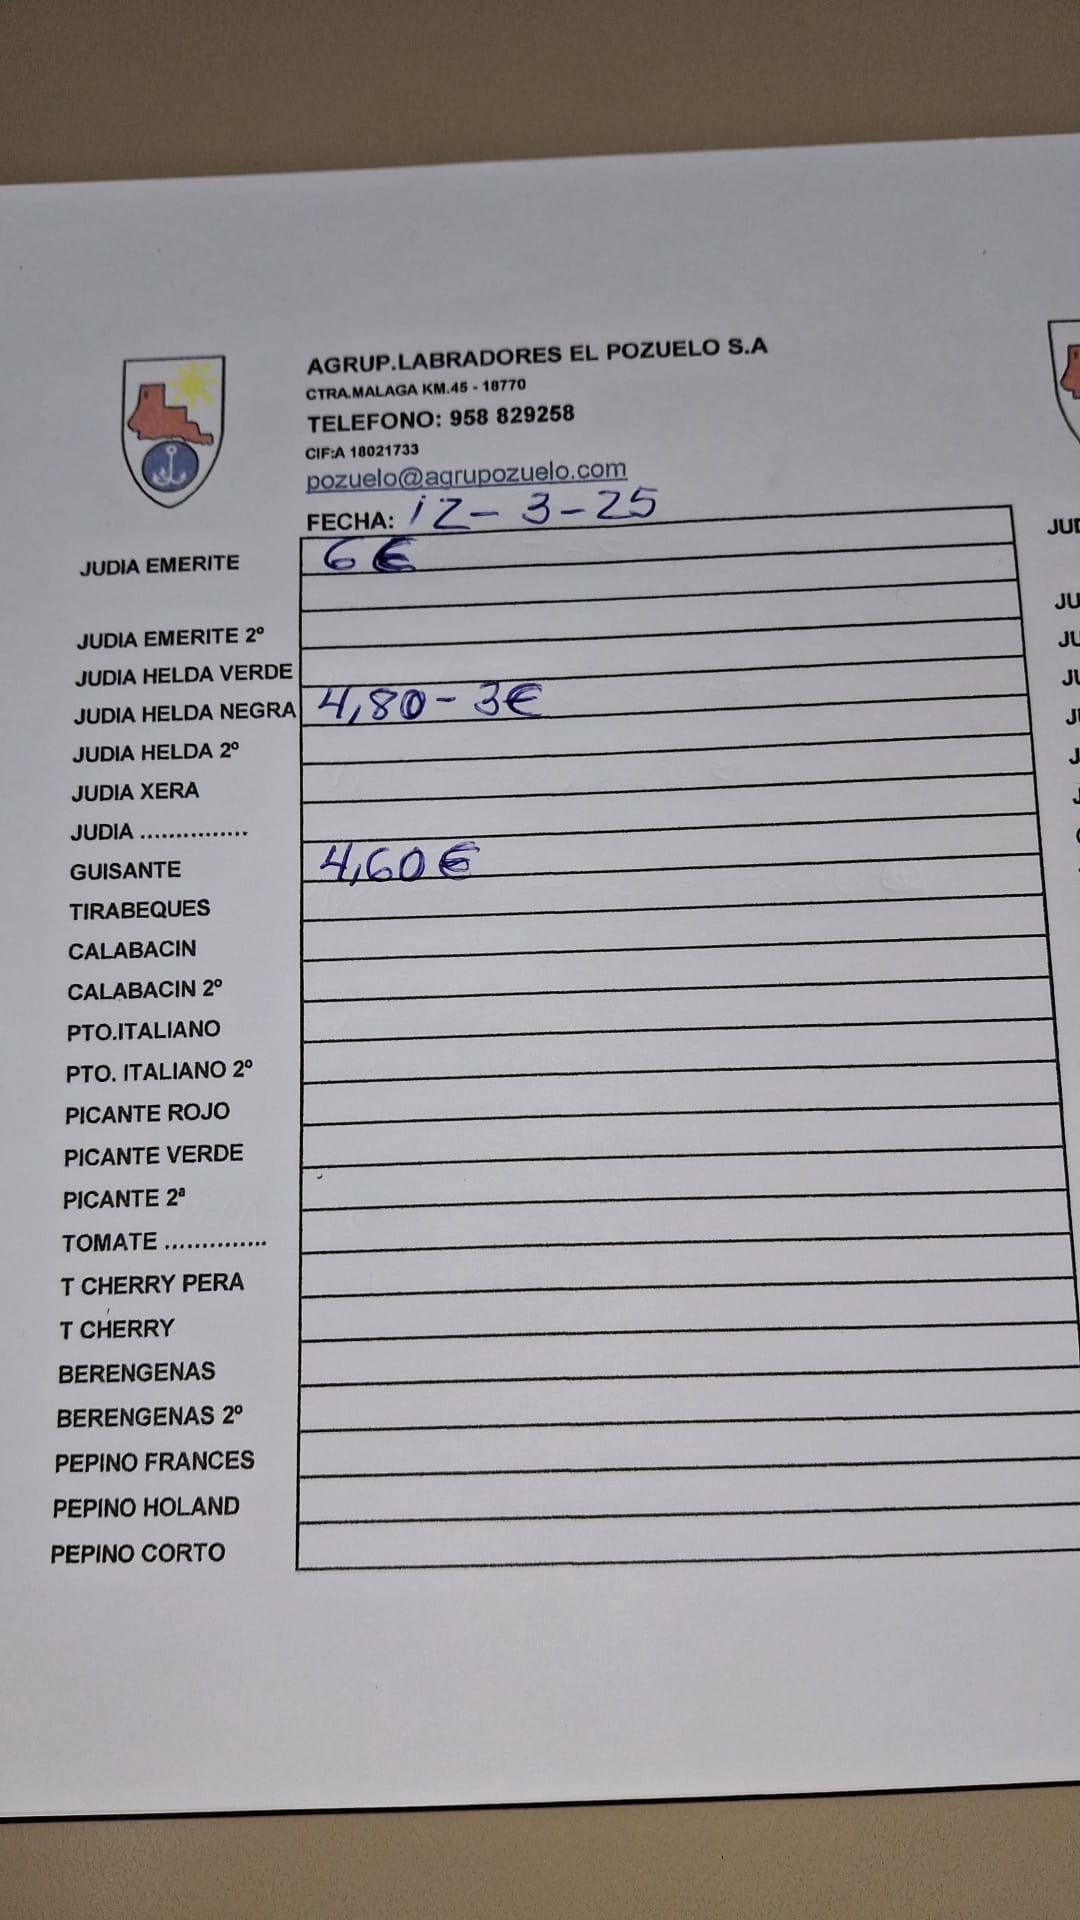 AGRUP.LABRADORES EL POZUELO S.A
CTRA.MALAGA KM.45 - 18770
TELEFONO: 958 829258
CIF:A 18021733
pozuelo@agrupozuelo.com
FECHA: 12-3-25
JUDIA EMERITE 6 €
JUDIA EMERITE 2º
JUDIA HELDA VERDE
JUDIA HELDA NEGRA 4,80-3€
JUDIA HELDA 2º
JUDIA XERA
JUDIA ...............
GUISANTE 4,60€
TIRABEQUES
CALABACIN
CALABACIN 2º
PTO.ITALIANO
PTO. ITALIANO 2º
PICANTE ROJO
PICANTE VERDE
PICANTE 2ª
TOMATE ..............
T CHERRY PERA
T CHERRY
BERENGENAS
BERENGENAS 2º
PEPINO FRANCES
PEPINO HOLAND
PEPINO CORTO